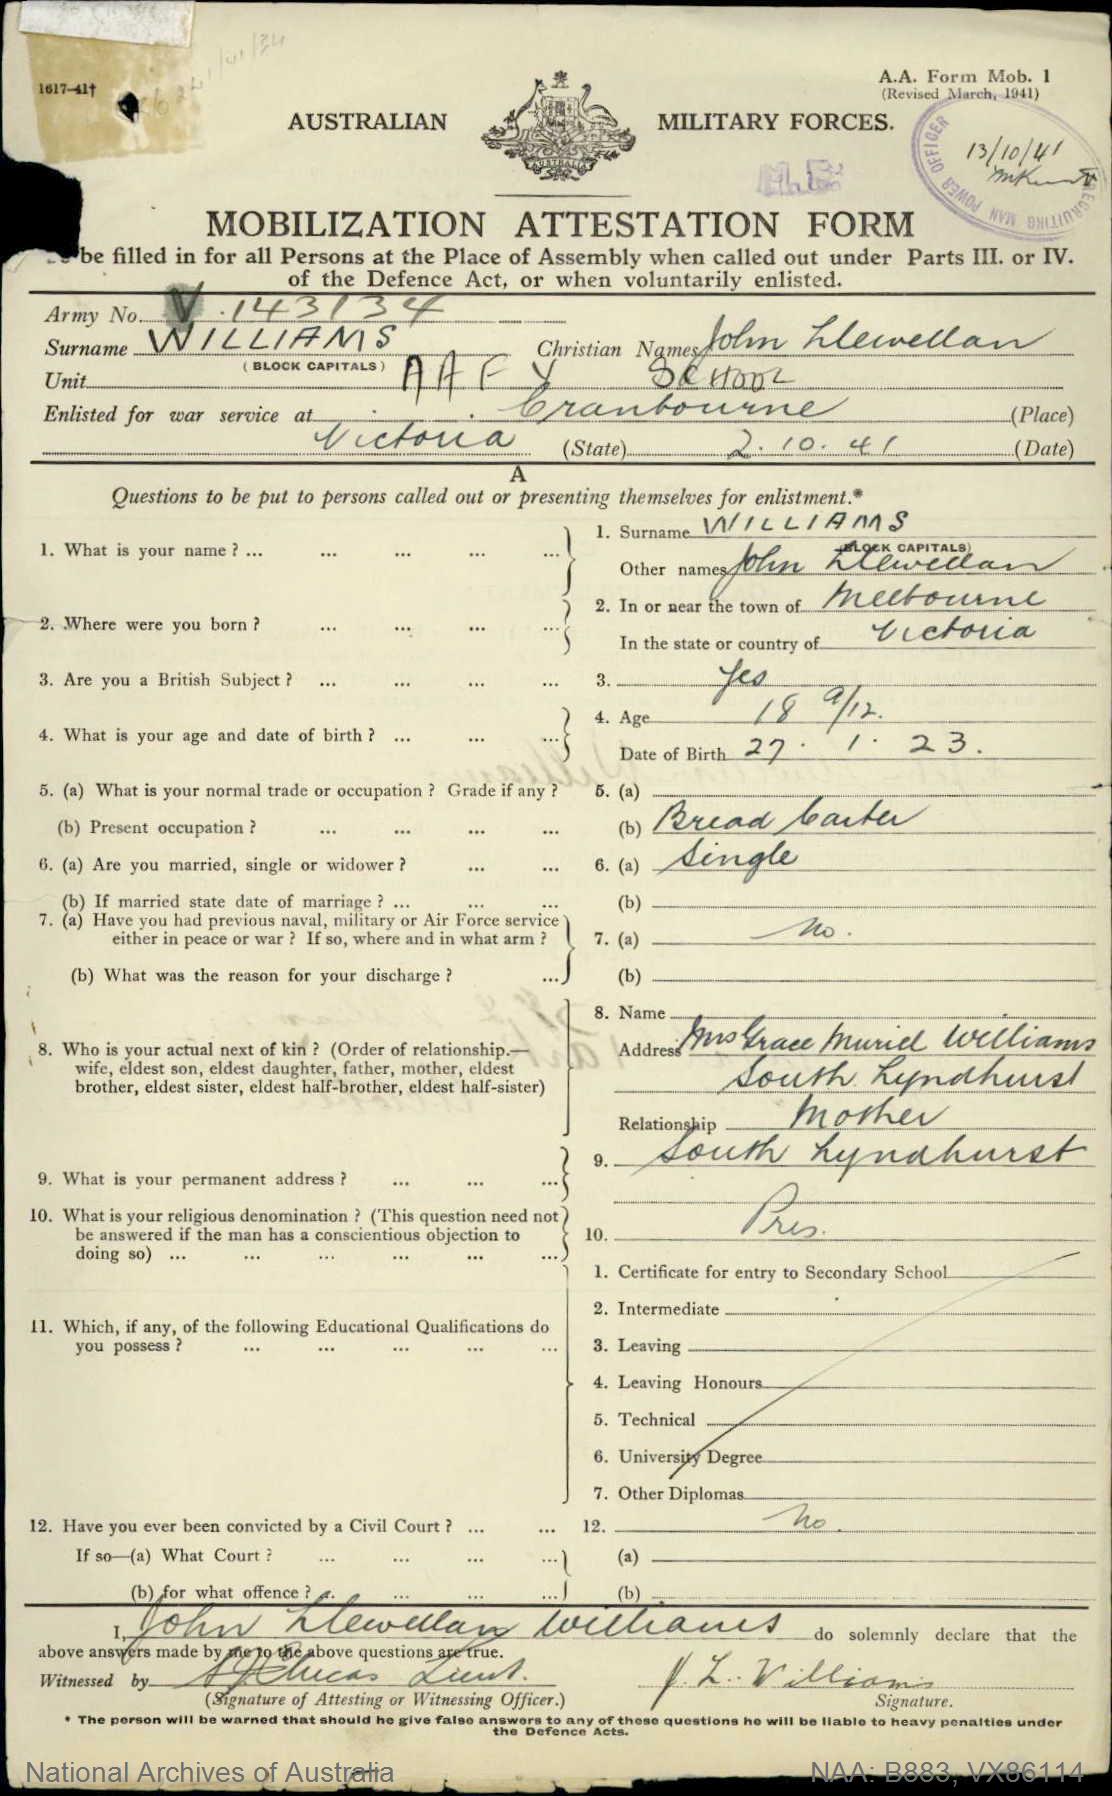 1617—41†
A.A. Form Mob. 1
(Revised March, 1941)
AUSTRALIAN MILITARY FORCES.
AUSTRALIA
RECRUITING MAN POWER OFFICER
13/10/41
MOBILIZATION ATTESTATION FORM
be filled in for all Persons at the Place of Assembly when called out under Parts III. or IV.
of the Defence Act, or when voluntarily enlisted.
Army No. V 143134
Surname WILLIAMS Christian Names John Llewellan
(BLOCK CAPITALS)
Unit AAF Y SCHOOL
Enlisted for war service at Cranbourne (Place)
Victoria (State) 2.10.41 (Date)
A
Questions to be put to persons called out or presenting themselves for enlistment.*
1. What is your name ? ... ... ... ... ... 1. Surname WILLIAMS
(BLOCK CAPITALS)
Other names John Llewellan
2. Where were you born ? ... ... ... ... 2. In or near the town of Melbourne
In the state or country of Victoria
3. Are you a British Subject ? ... ... ... ... 3. Yes
4. What is your age and date of birth ? ... ... ... 4. Age 18 9/12.
Date of Birth 27. 1. 23.
5. (a) What is your normal trade or occupation ? Grade if any ? 5. (a)
(b) Present occupation ? ... ... ... ... (b) Bread Carter
6. (a) Are you married, single or widower ? ... ... 6. (a) Single
(b) If married state date of marriage ? ... ... ... (b)
7. (a) Have you had previous naval, military or Air Force service
either in peace or war ? If so, where and in what arm ? 7. (a) No.
(b) What was the reason for your discharge ? ... (b)
8. Name
8. Who is your actual next of kin ? (Order of relationship.— Address Mrs Grace Muriel Williams
wife, eldest son, eldest daughter, father, mother, eldest South Lyndhurst
brother, eldest sister, eldest half-brother, eldest half-sister)
Relationship Mother
9. What is your permanent address ? ... ... ... 9. South Lyndhurst
10. What is your religious denomination ? (This question need not
be answered if the man has a conscientious objection to 10. Pres.
doing so) ... ... ... ... ... ...
1. Certificate for entry to Secondary School
2. Intermediate
11. Which, if any, of the following Educational Qualifications do
you possess ? ... ... ... ... ... 3. Leaving
4. Leaving Honours
5. Technical
6. University Degree
7. Other Diplomas
12. Have you ever been convicted by a Civil Court ? ... ... 12. No.
If so—(a) What Court ? ... ... ... ... (a)
(b) for what offence ? ... ... ... (b)
I, John Llewellan Williams do solemnly declare that the
above answers made by me to the above questions are true.
Witnessed by Lucas Lieut. J. L. Williams
(Signature of Attesting or Witnessing Officer.) Signature.
* The person will be warned that should he give false answers to any of these questions he will be liable to heavy penalties under
the Defence Acts.
National Archives of Australia NAA: B883, VX86114